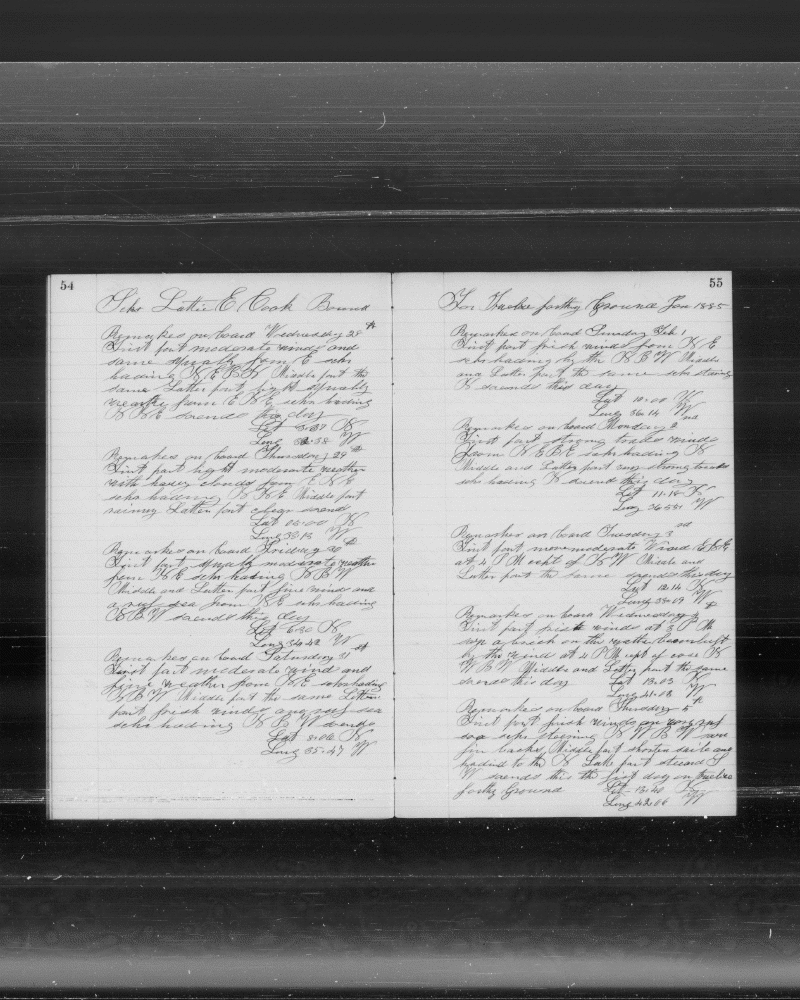 54
Schr Lettie E Cook Bound
Remarkes on board Wednesday 28th
First part moderate winds and
some squalls from E schr
heading N E B N Middle part the
same Latter part light squally
weather from E N E schr heading
N N E soends this day
Lat 3.37 N
Long 38 W
Remarkes on board Thursday 29th
First part light moderate weather
with hasey clouds from E N E
schr heading N N E Middle part
rainney Latter part clear soends
Lat N
Long W
Remarkes on board Friday 30th
First part squally moderate weather
from N E schr heading N B W
Middle and Latter part fine winds and
a rug sea from N E schr heading
N B W soends this day
Lat 6.30 N
Long 34.42 W
Remarkes on board Saturday 31st
First part moderate winds and
fine weather from N E schr heading
N B W Middle part the same Latter
part fresh winds and rug sea
schr heading N B W soends
Lat 8.06 N
Long 35.47 W
55
For forthy Ground Jan 1885
Remarkes on board Sunday Feb 1
First part fresh winds from N E
schr heading by the N B W Middle
and Latter part the same schr
N soends this day
Lat 10.00 N
Long 36.14 W
Remarkes on board Monday 2nd
First part strong trades winds
from N E B E schr heading N
Middle and Latter part very strong trades
schr heading N soends this day
Lat 11.18 N
Long W
Remarkes on board Tuesday 3rd
First part more moderate Wind E B E
at 4 P M kept of N W Middle and
Latter part the same soends this day
Lat 12.14 N
Long 38.09 W
Remarkes on board Wednesday 4
First part fresh winds at 3 P M
on the
by the wind at 4 P M kept of N
W B W Middle and Latter part the same
soends this day Lat 13.03 N
Long 41.08 W
Remarkes on board Thursday 5th
First part fresh winds an very rug
sea schr steering N W B W
fin backs Middle part shorten saile and
headed to the N Late part steead S
W soends this the first day on
forthy Ground Lat 13.40 N
Long 42.06 W